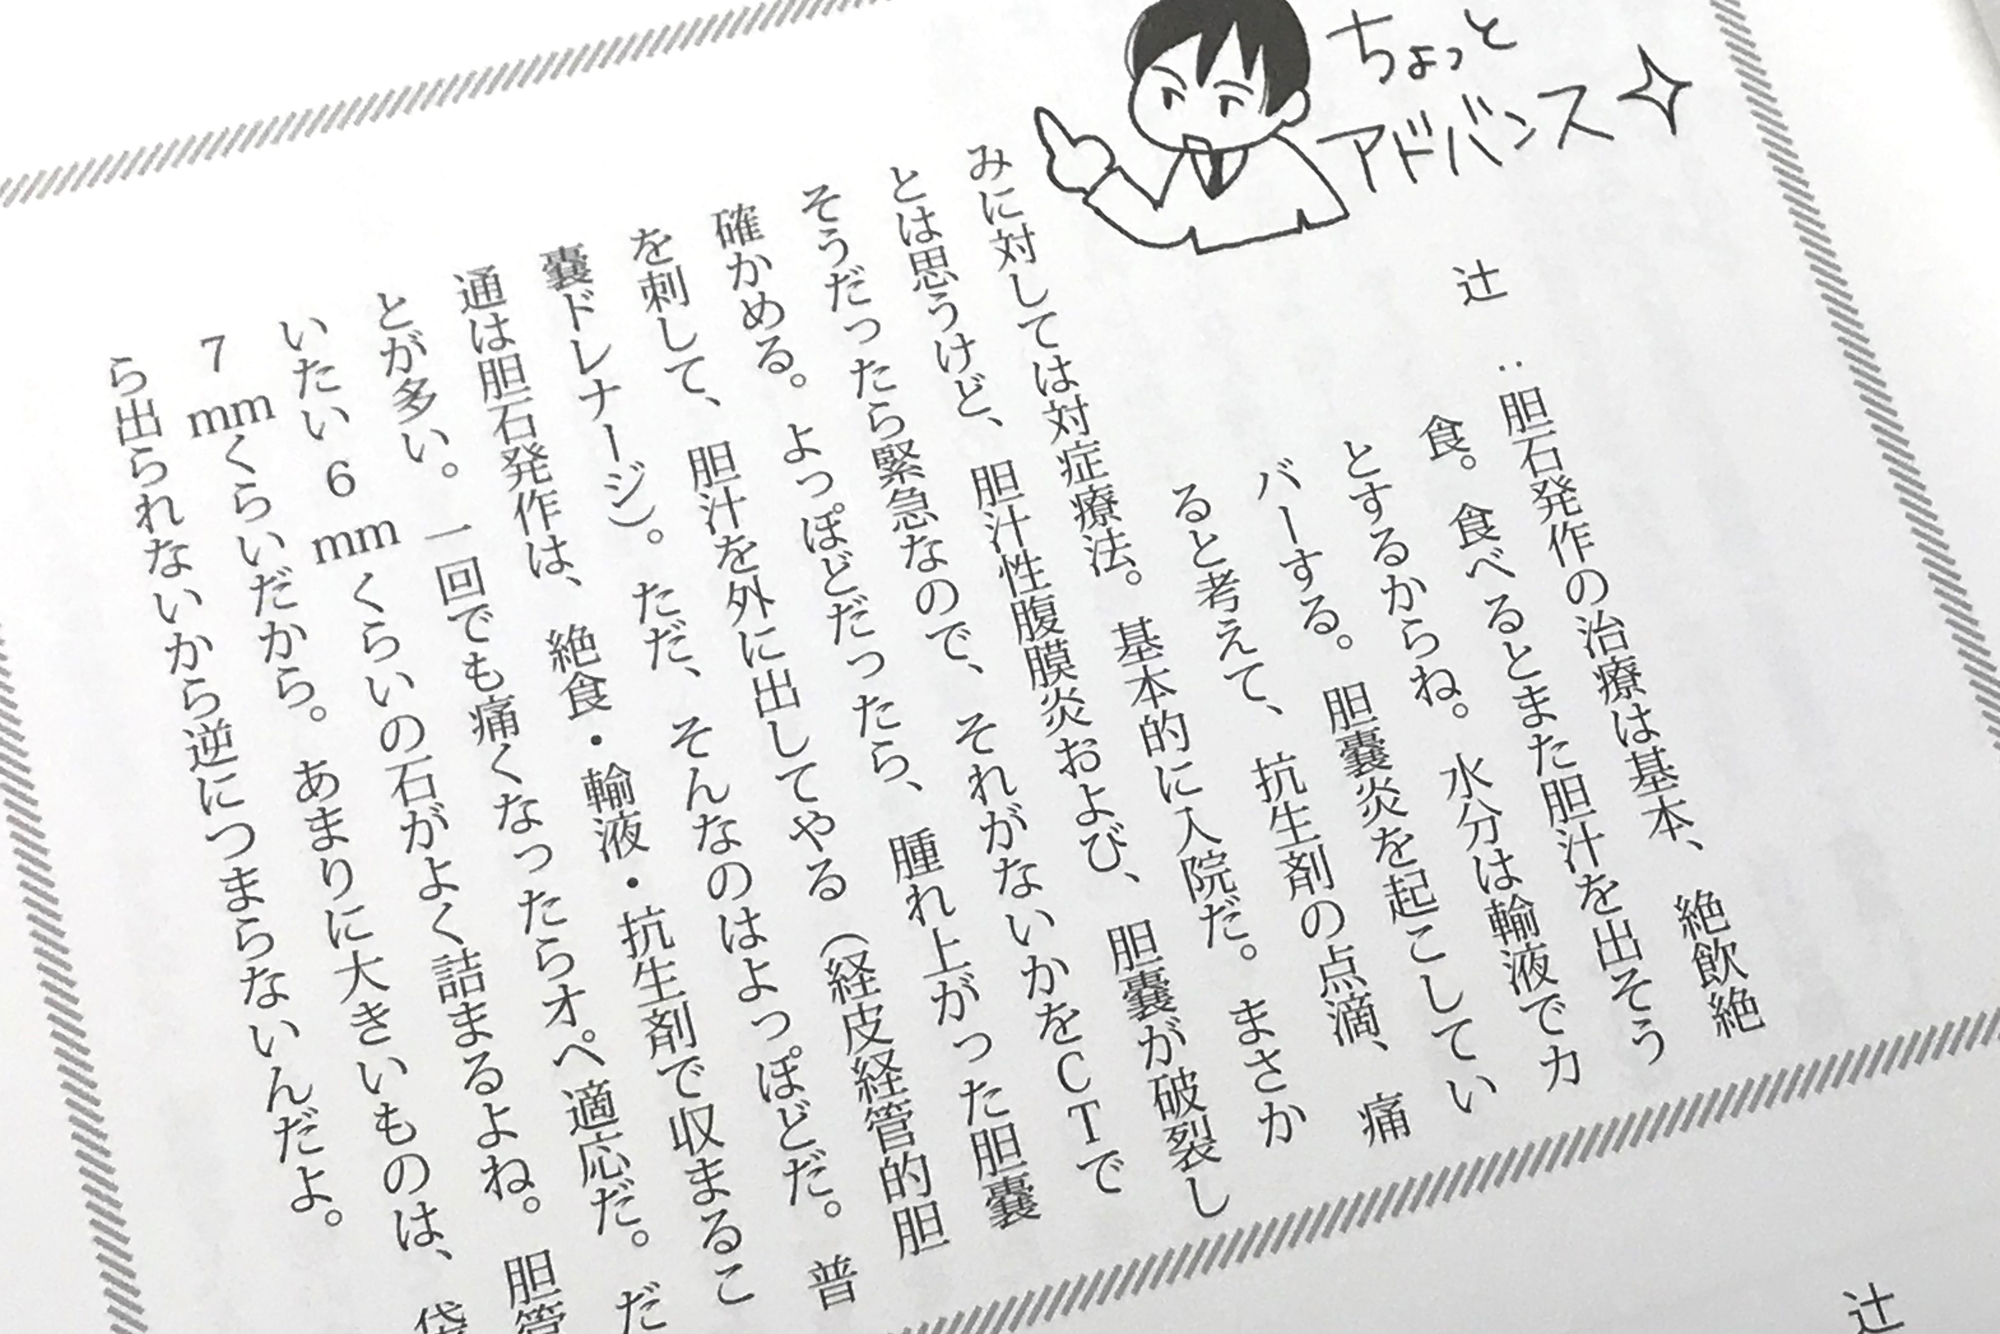 ちょっと
アドバンス
辻 :胆石発作の治療は基本、絶飲絶
食。食べるとまた胆汁を出そう
とするからね。水分は輸液でカ
バーする。胆嚢炎を起こしてい
ると考えて、抗生剤の点滴、痛
みに対しては対症療法。基本的に入院だ。まさか
とは思うけど、胆汁性腹膜炎および、胆嚢が破裂し
そうだったら緊急なので、それがないかをCTで
確かめる。よっぽどだったら、腫れ上がった胆嚢
を刺して、胆汁を外に出してやる（経皮経管的胆
嚢ドレナージ）。ただ、そんなのはよっぽどだ。普
通は胆石発作は、絶食・輸液・抗生剤で収まるこ
とが多い。一回でも痛くなったらオペ適応だ。だ
いたい6mmくらいの石がよく詰まるよね。胆管
7mmくらいだから。あまりに大きいものは、袋
ら出られないから逆につまらないんだよ。
辻